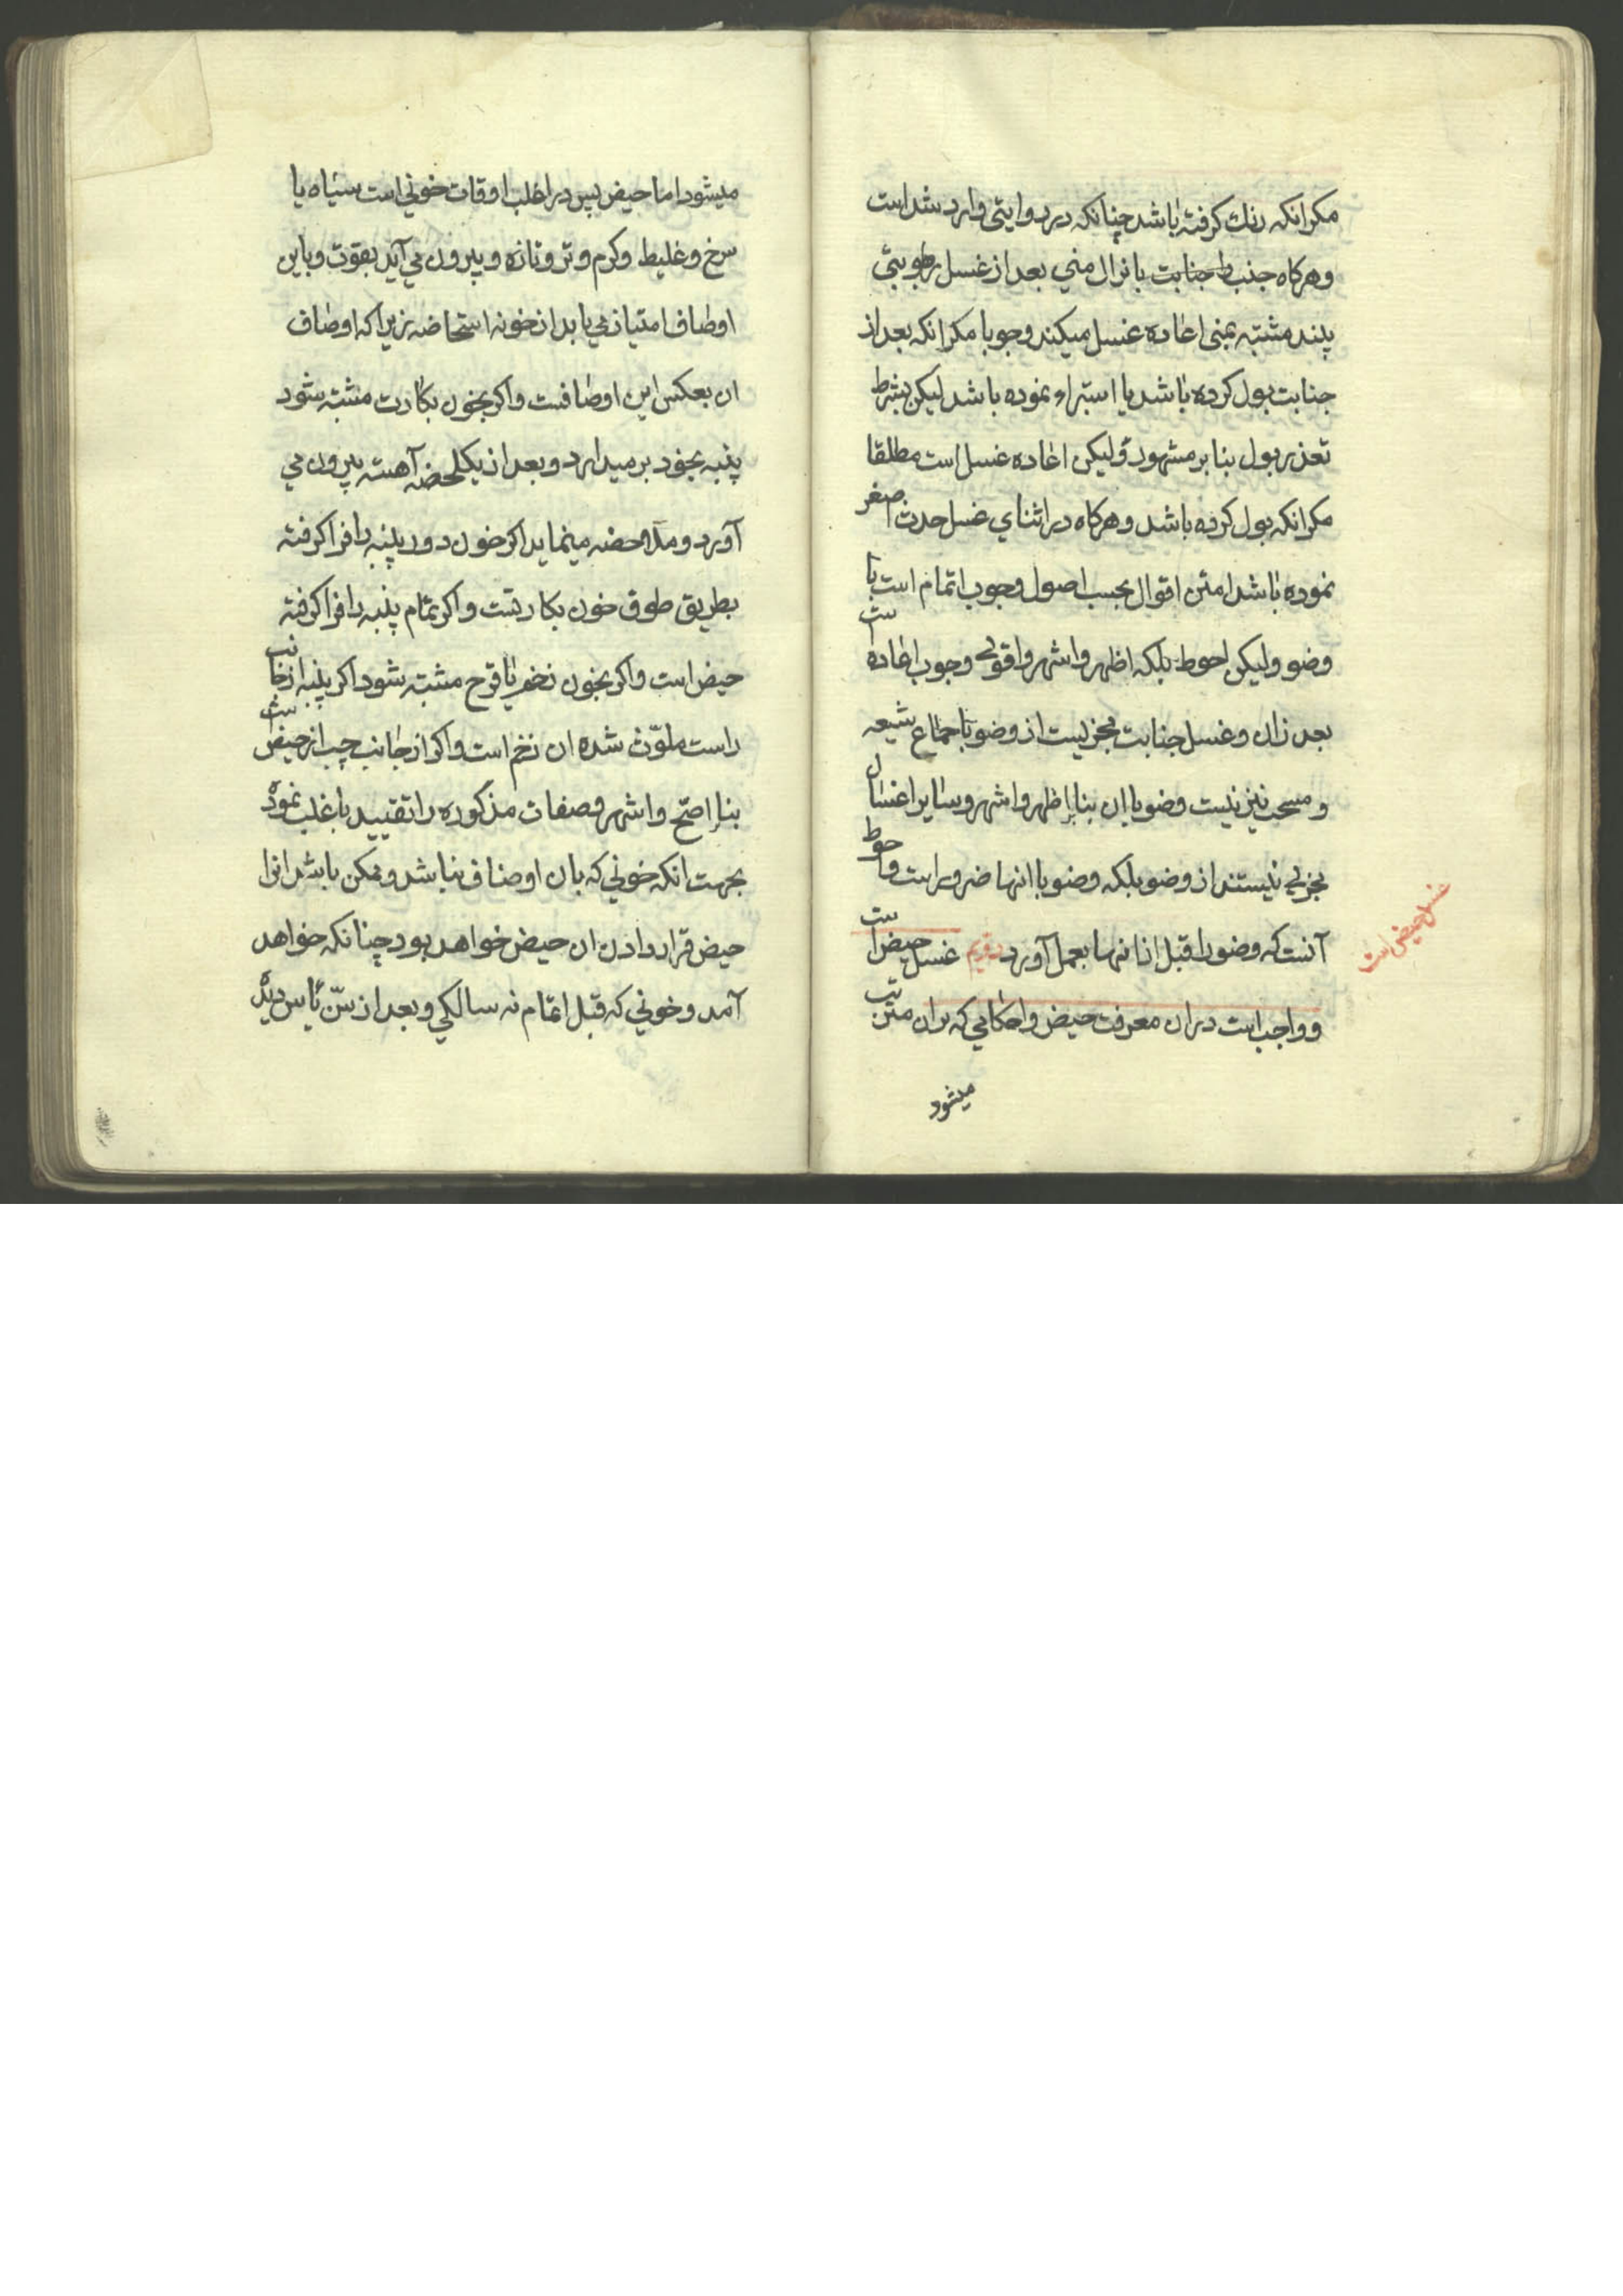 مکر انکه رنك کرفته باشد چنانکه در روایتی وارد شداست
و هرکاه جنب جنابت بانزال مني بعد از غسل رطوبتی
پیند مشتبه بمنی اعاده غسل میکند وجوبا مکر انکه بعد از
جنابت بول کرده باشد یا استبراء نموده باشد لیکن بشرط
تعذر بول بنا بر مشهور و لیکن اعاده غسل است مطلقا
مکر انکه بول کرده باشد و هرکاه در اثنای غسل حدث اصغر
نموده باشد امتن اقوال بحسب اصول وجوب اتمام است با
وضو ولیکن احوط بلکه اظهر و اشهر و اقوی وجوب اعاده است
بعد از ان و غسل جنابت مجزیست از وضو باجماع شیعه
و مستحب نیز نیست وضو با ان بنا باظهر و اشهر و سایر اغسال
مجزی نیستند از وضو بلکه وضو با انها ضرور است و احوط
آنست که وضو را قبل از انها بعمل آورد دویم غسل حیض است
و واجب است در ان معرفت حیض و احکامی که بران مترتب
میشود
غسل حیض است
میشود اما حیض پس در اغلب اوقات خونی است سیاه یا
سرخ و غلیط و کرم و تر و تازه و بیرون می آید بقوت و باین
اوصاف امتیاز می یابد از خون استحاضه زیرا که اوصاف
ان بعکس این اوصافست و اکر بخون بکارت مشتبه شود
پنبه بخود بر میدارد و بعد از یکلحضه آهسته بیرون می
آورد و ملاحضه مینماید اکر خون دور پنبه را فرا کرفته
بطریق طوق خون بکارتست و اکر تمام پنبه را فرا کرفته
حیض است و اکر بخون زخم یا قرح مشتبه شود اکر پنبه از جانب
راست ملوّث شده ان زخم است و اکر از جانب چپ از حیض است
بنا باصحّ و اشهر و صفات مذکوره را تقیید باغلب نموده
بجهت انکه خونی که بان اوصاف نباشد و ممکن باشد انرا
حیض قرار دادن ان حیض خواهد بود چنانکه خواهد
آمد و خونی که قبل اتمام نه سالکی و بعد از سنّ یأس دیده